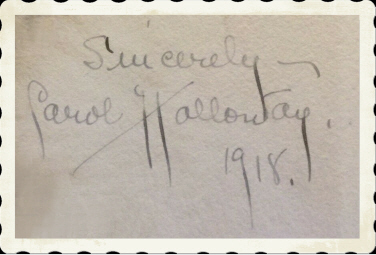 Sincerely –
Carol Holloway.
1918.